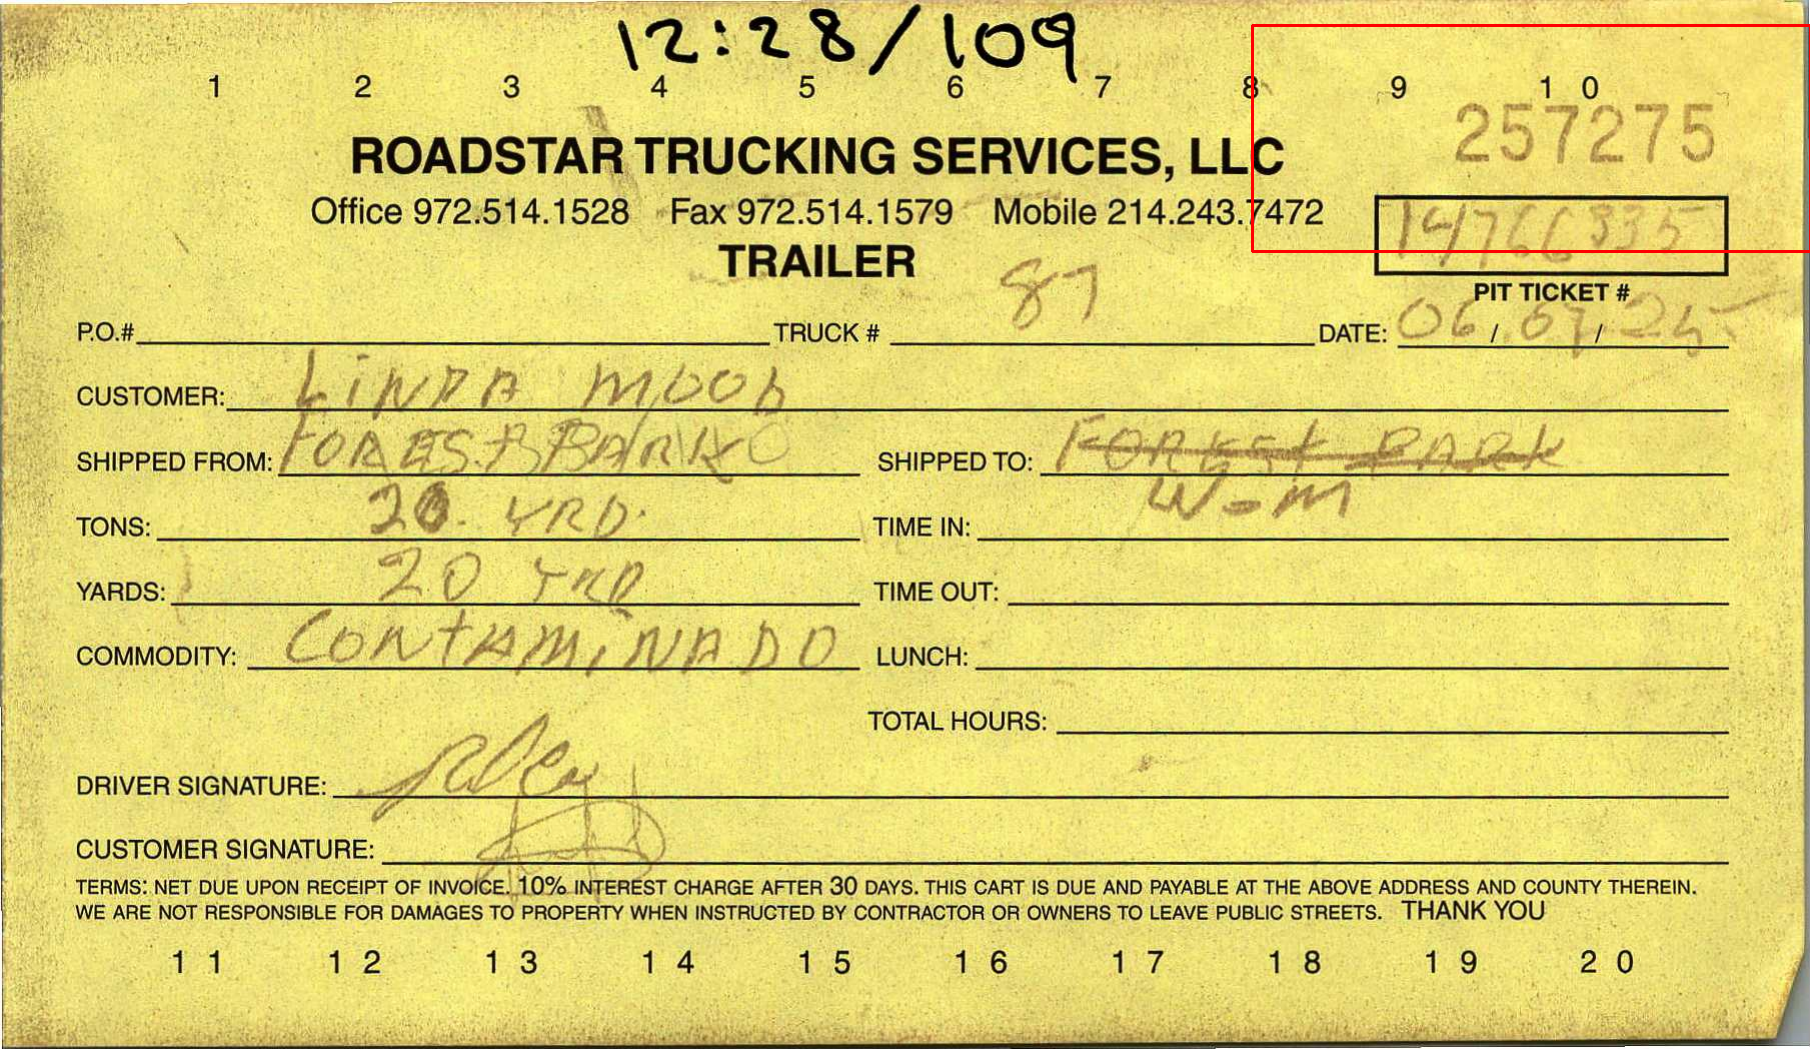 12:28/109
1 2 3 4 5 6 7 8 9 10
257275
ROADSTAR TRUCKING SERVICES, LLC
Office 972.514.1528 Fax 972.514.1579 Mobile 214.243.7472
14766335
TRAILER
PIT TICKET #
P.O.# TRUCK # 87 DATE: 06/07/25
CUSTOMER: LINDA MOOD
SHIPPED FROM: FOREST PARK SHIPPED TO: FOREST PARK
W-M
TONS: 20 YRD. TIME IN:
YARDS: 20 YRD TIME OUT:
COMMODITY: CONTAMINADO LUNCH:
TOTAL HOURS:
DRIVER SIGNATURE:
CUSTOMER SIGNATURE:
TERMS: NET DUE UPON RECEIPT OF INVOICE. 10% INTEREST CHARGE AFTER 30 DAYS. THIS CART IS DUE AND PAYABLE AT THE ABOVE ADDRESS AND COUNTY THEREIN.
WE ARE NOT RESPONSIBLE FOR DAMAGES TO PROPERTY WHEN INSTRUCTED BY CONTRACTOR OR OWNERS TO LEAVE PUBLIC STREETS. THANK YOU
11 12 13 14 15 16 17 18 19 20